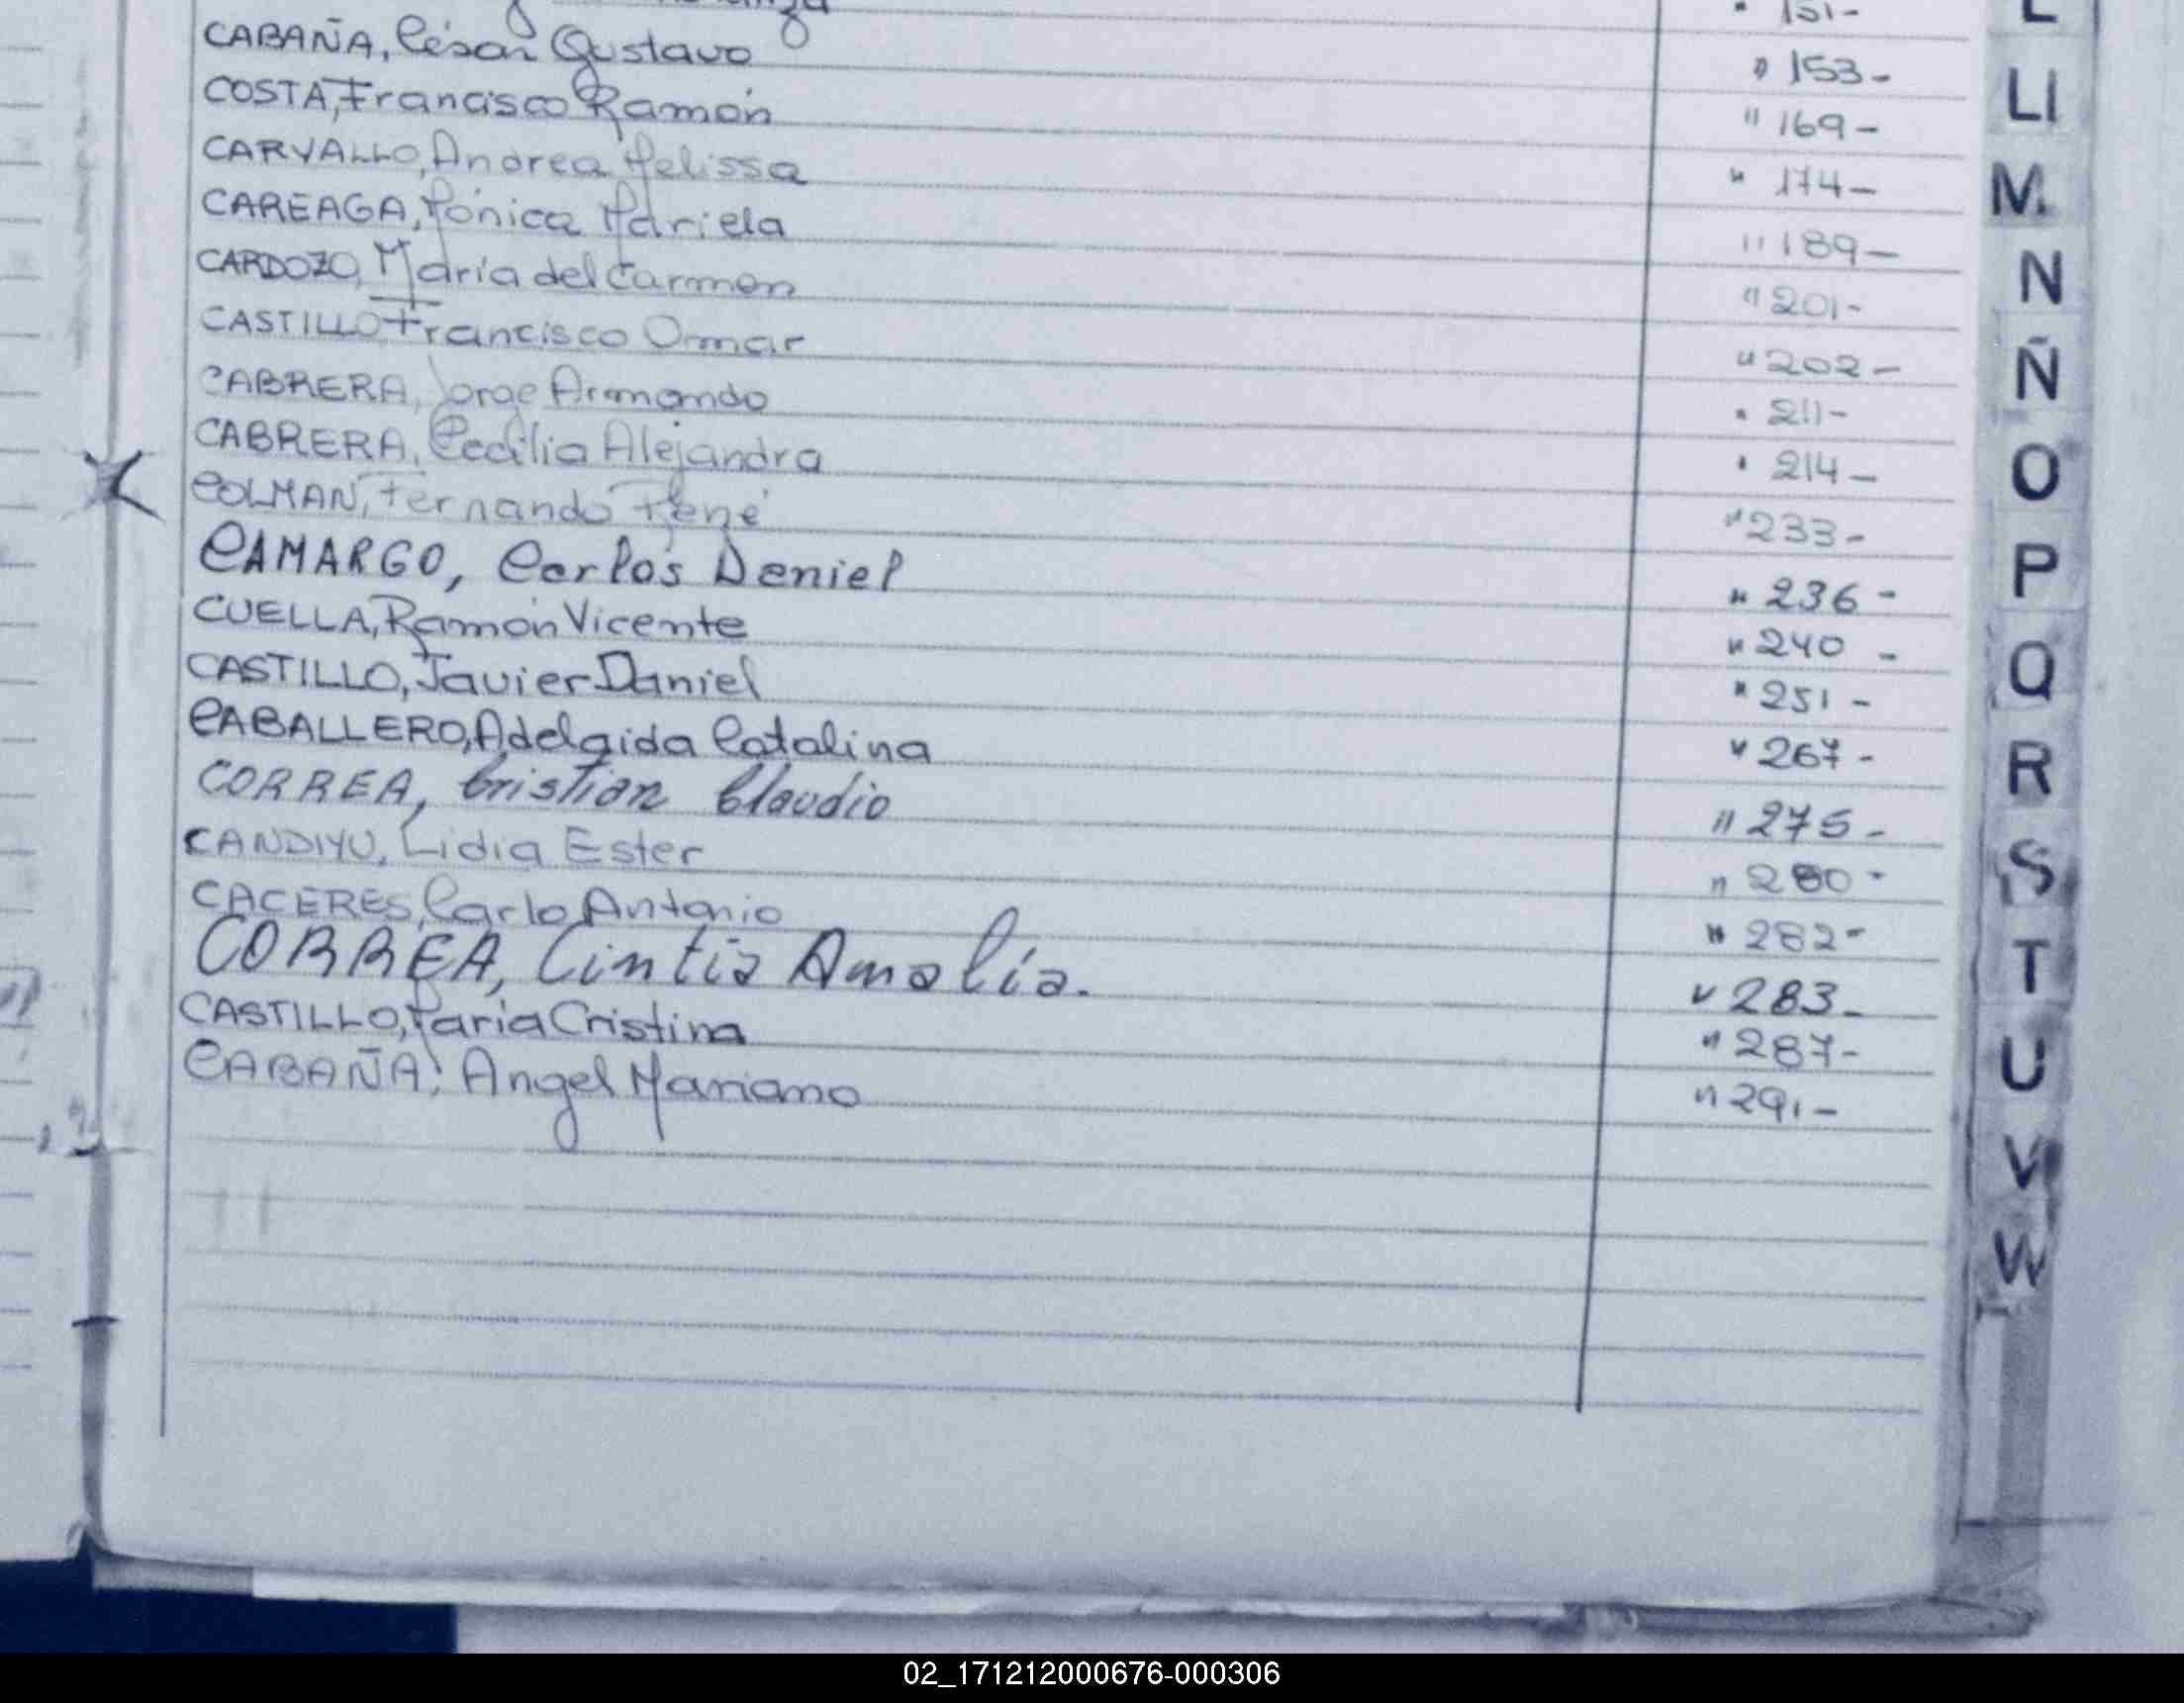 " 151-
CABAÑA, César Gustavo " 153-
COSTA, Francisco Ramón " 169-
CARVALLO, Andrea Melissa " 174-
CAREAGA, Mónica Mariela " 189-
CARDOZO, María del Carmen " 201-
CASTILLO, Francisco Omar " 202-
CABRERA, Jorge Armando " 211-
CABRERA, Cecilia Alejandra " 214-
COLMAN, Fernando René " 233-
CAMARGO, Carlos Daniel " 236-
CUELLA, Ramón Vicente " 240-
CASTILLO, Javier Daniel " 251-
CABALLERO, Adelaida Catalina " 267-
CORREA, Cristian Claudio " 275-
CANDIYU, Lidia Ester " 280-
CACERES, Carlo Antonio " 282-
CORREA, Cintia Amalia. " 283-
CASTILLO, María Cristina " 287-
CABAÑA, Angel Mariano " 291-
L
LI
M
N
Ñ
O
P
Q
R
S
T
U
V
W
02_171212000676-000306